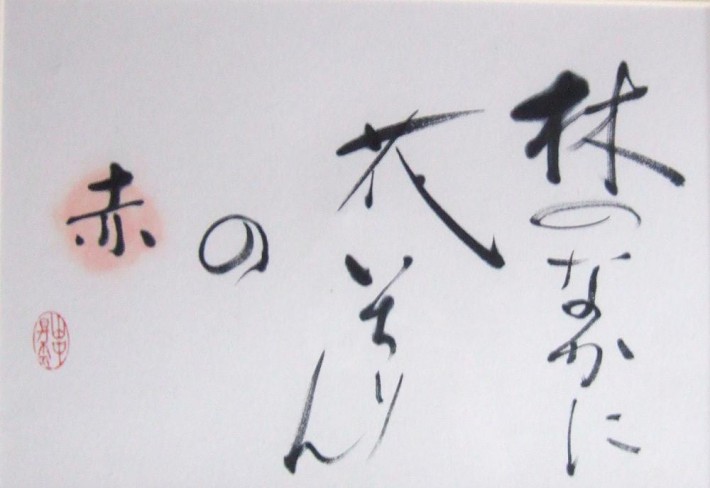 林のなかに
花いちりん
の
赤